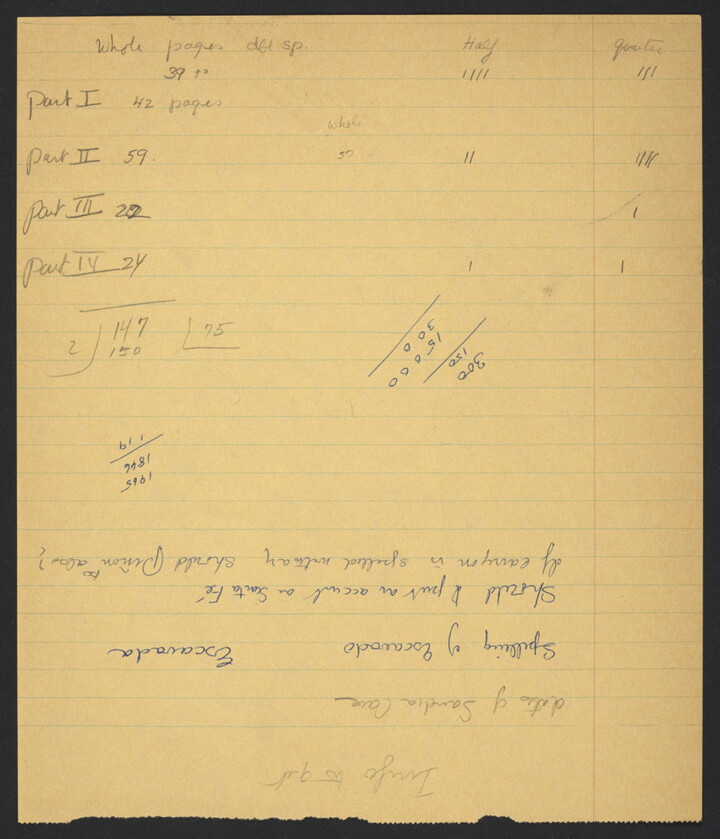 Whole pages dbl sp. Half Quarter
39 IIII III
Part I 42 pages
Whole
Part II 59. 57 II IIII
Part III 22 I
Part IV 24 I I
2 147 75
150
300
150
300
15000
Info to get
dates of Sandia Cave
Spelling of Escavado Escavada
Should I put an accent on Santa Fé
If canyon is spelled with ny should Piñon be also?
1965
1846
119